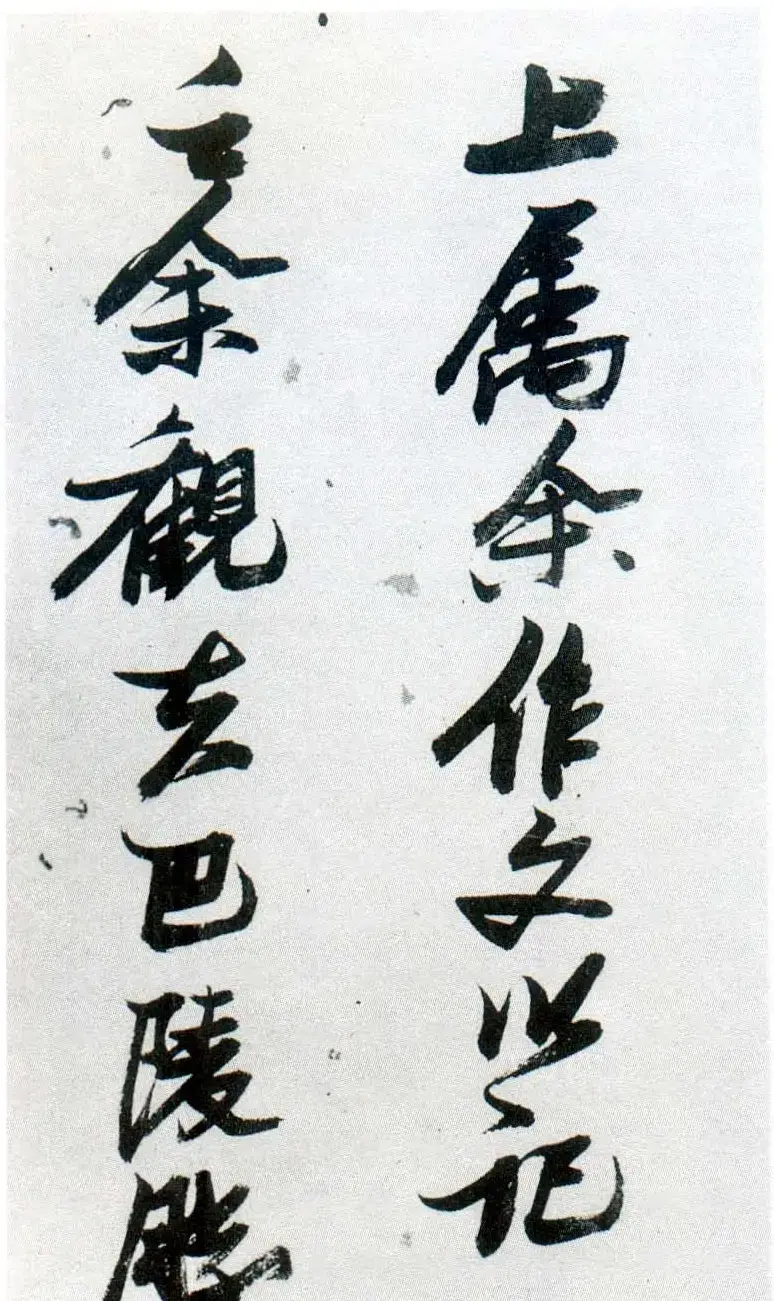 上属余作文以记
之余觀夫巴陵勝